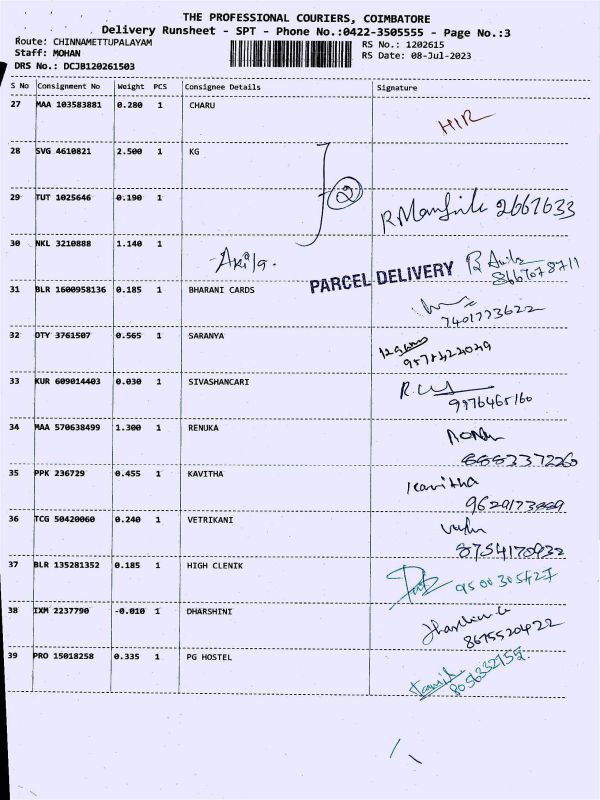 THE PROFESSIONAL COURIERS, COIMBATORE
Delivery Runsheet - SPT - Phone No.:0422-3505555 - Page No.:3
Route: CHINNAMETTUPALAYAM RS No.: 1202615
Staff: MOHAN RS Date: 08-Jul-2023
DRS No.: DCJB120261503
S No Consignment No Weight PCS Consignee Details Signature
27 MAA 103583881 0.280 1 CHARU
HIR
28 SVG 4610821 2.500 1 KG
2
29 TUT 1025646 0.190 1
2667633
30 NKL 3210888 1.140 1
Akila.
PARCEL DELIVERY
8667078711
31 BLR 1600958136 0.185 1 BHARANI CARDS
7401773622
32 OTY 3761507 0.565 1 SARANYA
33 KUR 609014403 0.030 1 SIVASHANCARI
9976465160
34 MAA 570638499 1.300 1 RENUKA
8883337260
35 PPK 236729 0.455 1 KAVITHA
Kavitha
36 TCG 50420060 0.240 1 VETRIKANI
37 BLR 135281352 0.185 1 HIGH CLENIK
9500305427
38 IXM 2237790 -0.010 1 DHARSHINI
8675520422
39 PRO 15018258 0.335 1 PG HOSTEL
8056332155